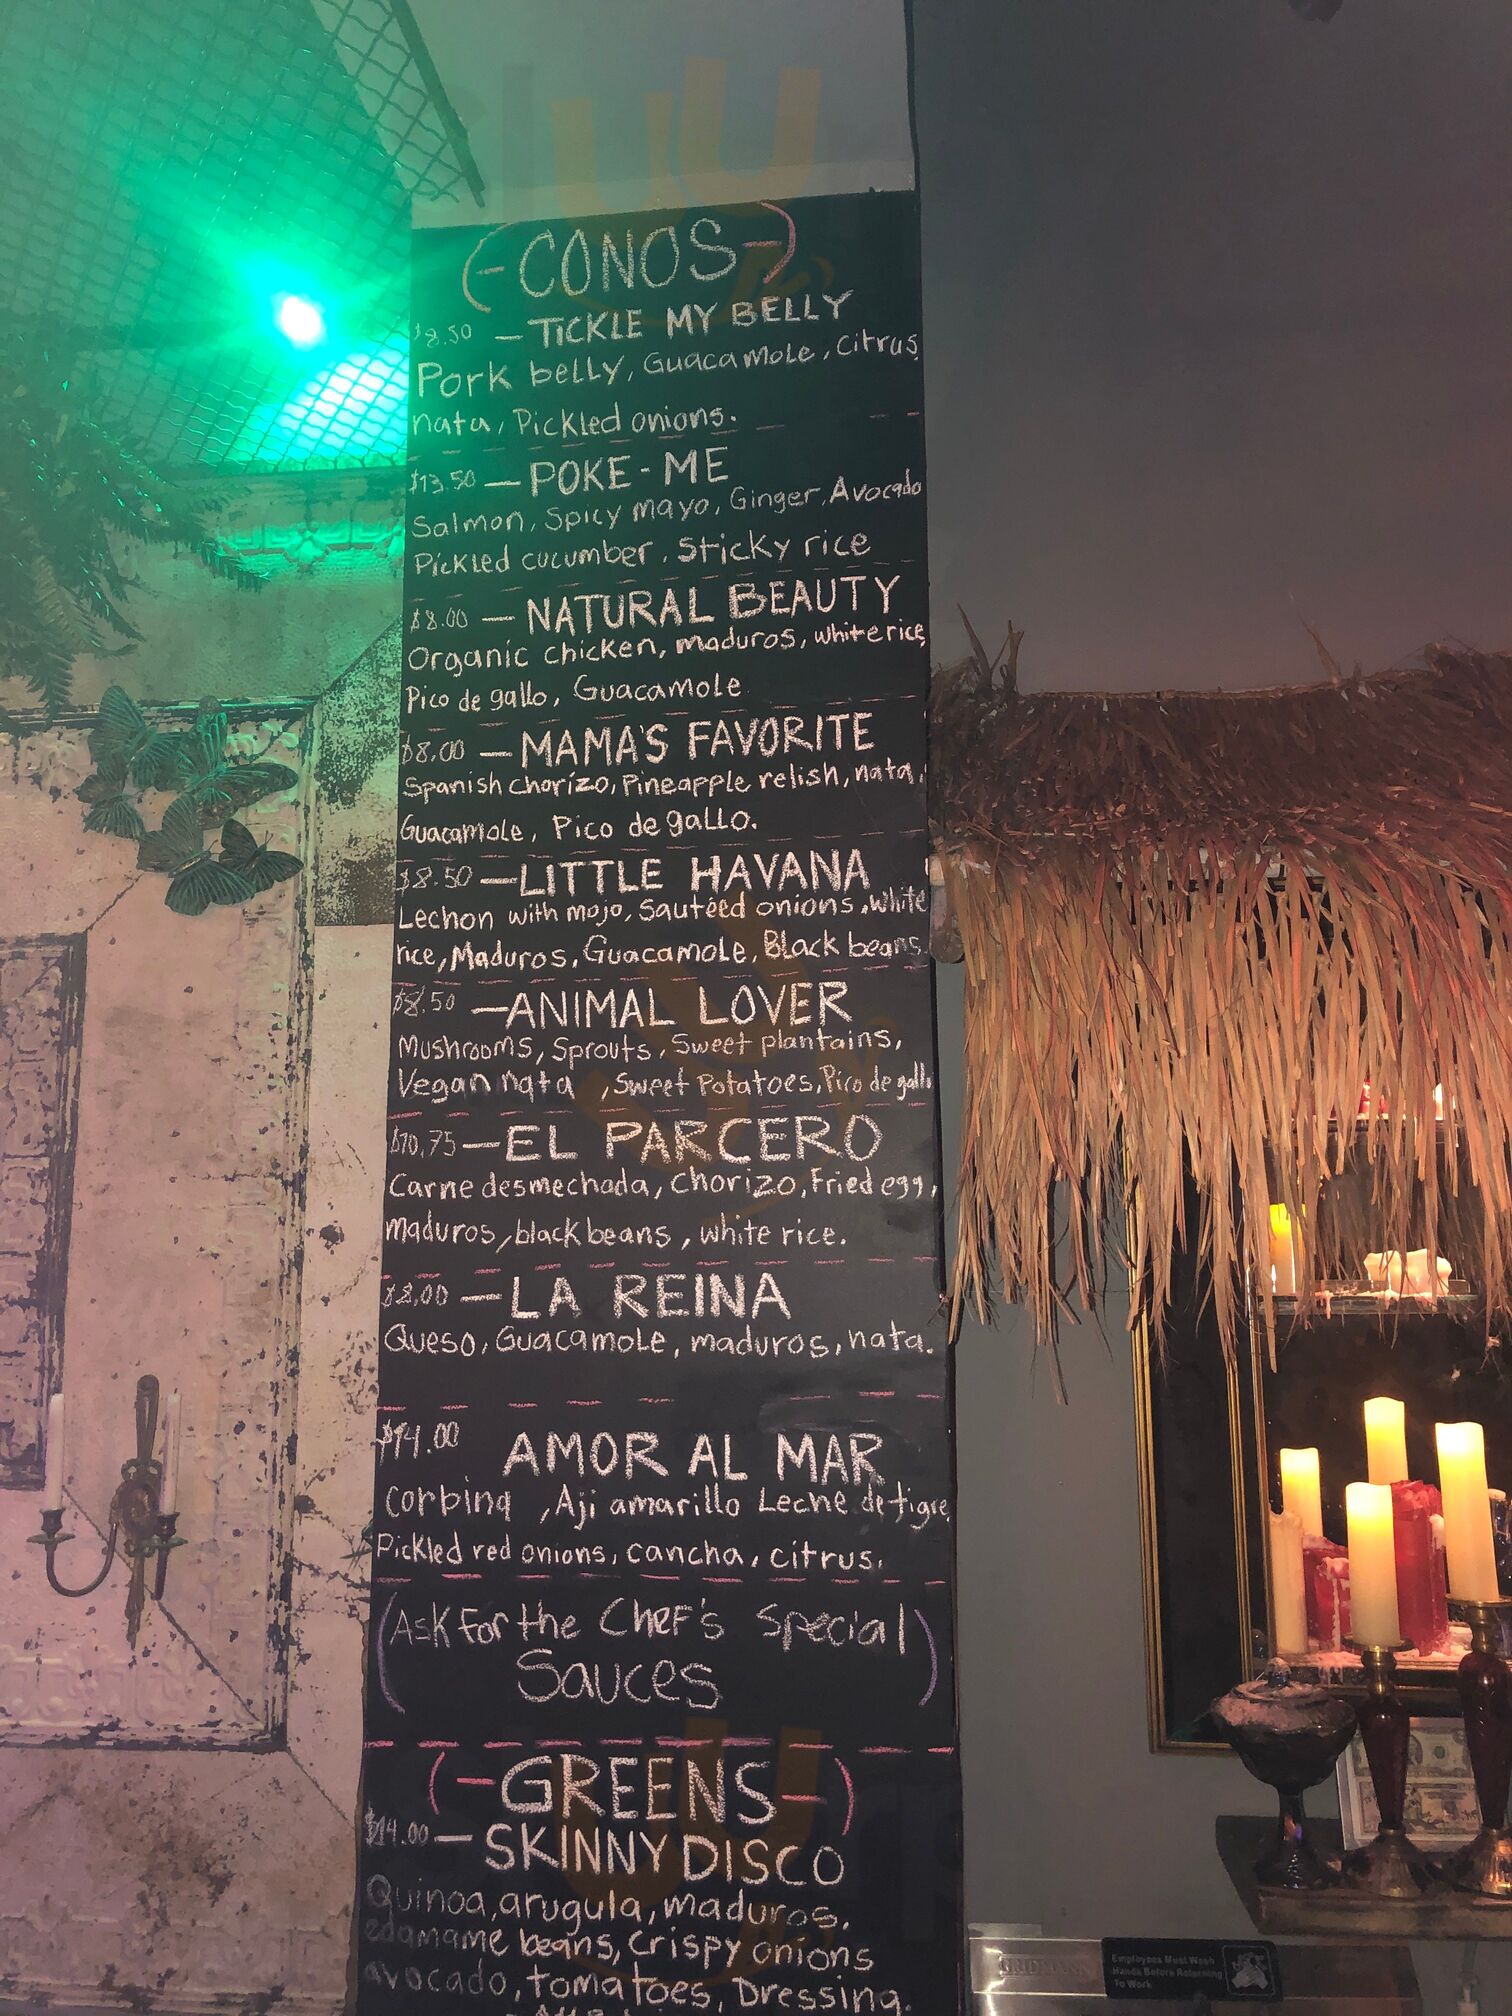 (-CONOS-)
$8.50 - TICKLE MY BELLY
Pork belly, Guacamole, citrus,
nata, Pickled onions.
$13.50 - POKE-ME
Salmon, Spicy mayo, Ginger, Avocado
Pickled cucumber, Sticky rice
$8.00 - NATURAL BEAUTY
Organic chicken, maduros, white rice,
Pico de gallo, Guacamole
$8.00 - MAMA'S FAVORITE
Spanish chorizo, Pineapple relish, nata,
Guacamole, Pico de gallo.
$8.50 - LITTLE HAVANA
Lechon with mojo, Sautéed onions, white
rice, Maduros, Guacamole, Black beans.
$8.50 - ANIMAL LOVER
Mushrooms, Sprouts, Sweet plantains,
Vegan nata, Sweet Potatoes, Pico de gallo
$10.75 - EL PARCERO
Carne desmechada, Chorizo, Fried egg,
maduros, black beans, white rice.
$8.00 - LA REINA
Queso, Guacamole, maduros, nata.
$14.00 AMOR AL MAR
Corbina, Aji amarillo Leche de tigre,
Pickled red onions, cancha, citrus.
(Ask for the Chef's Special
Sauces)
(-GREENS-)
$14.00 - SKINNY DISCO
Quinoa, arugula, maduros,
edamame beans, crispy onions
avocado, tomatoes, Dressing.
Employees Must Wash
Hands Before Returning
To Work